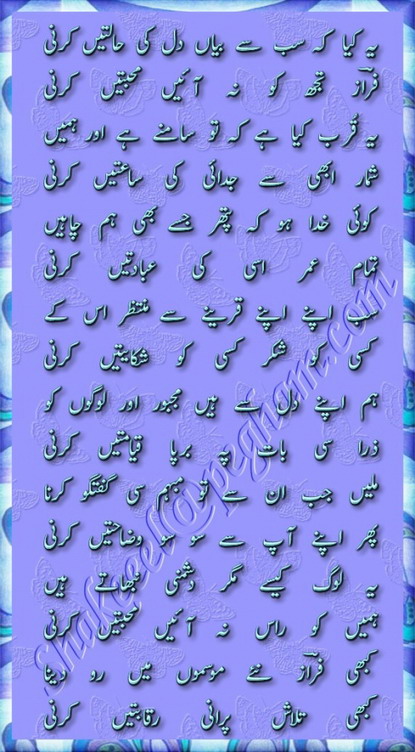 یہ کیا کہ سب سے بیاں دل کی حالتیں کرنی
فرازؔ تجھ کو نہ آئیں محبتیں کرنی
یہ قُرب کیا ہے کہ تو سامنے ہے اور ہمیں
شمار ابھی سے جدائی کی ساعتیں کرنی
کوئی خدا ہو کہ پتھر جسے بھی ہم چاہیں
تمام عمر اسی کی عبادتیں کرنی
سب اپنے اپنے قرینے سے منتظر اس کے
کسی کو شکر کسی کو شکایتیں کرنی
ہم اپنے دل سے ہیں مجبور اور لوگوں کو
ذرا سی بات پہ برپا قیامتیں کرنی
ملیں جب ان سے تو مبہم سی گفتگو کرنا
پھر اپنے آپ سے سو سو وضاحتیں کرنی
یہ لوگ کیسے مگر دشمنی نبھاتے ہیں
ہمیں کو راس نہ آئیں محبتیں کرنی
کبھی فرازؔ نئے موسموں میں رو دینا
کبھی تلاش پرانی رقابتیں کرنی
Shakeeel@pegham.com